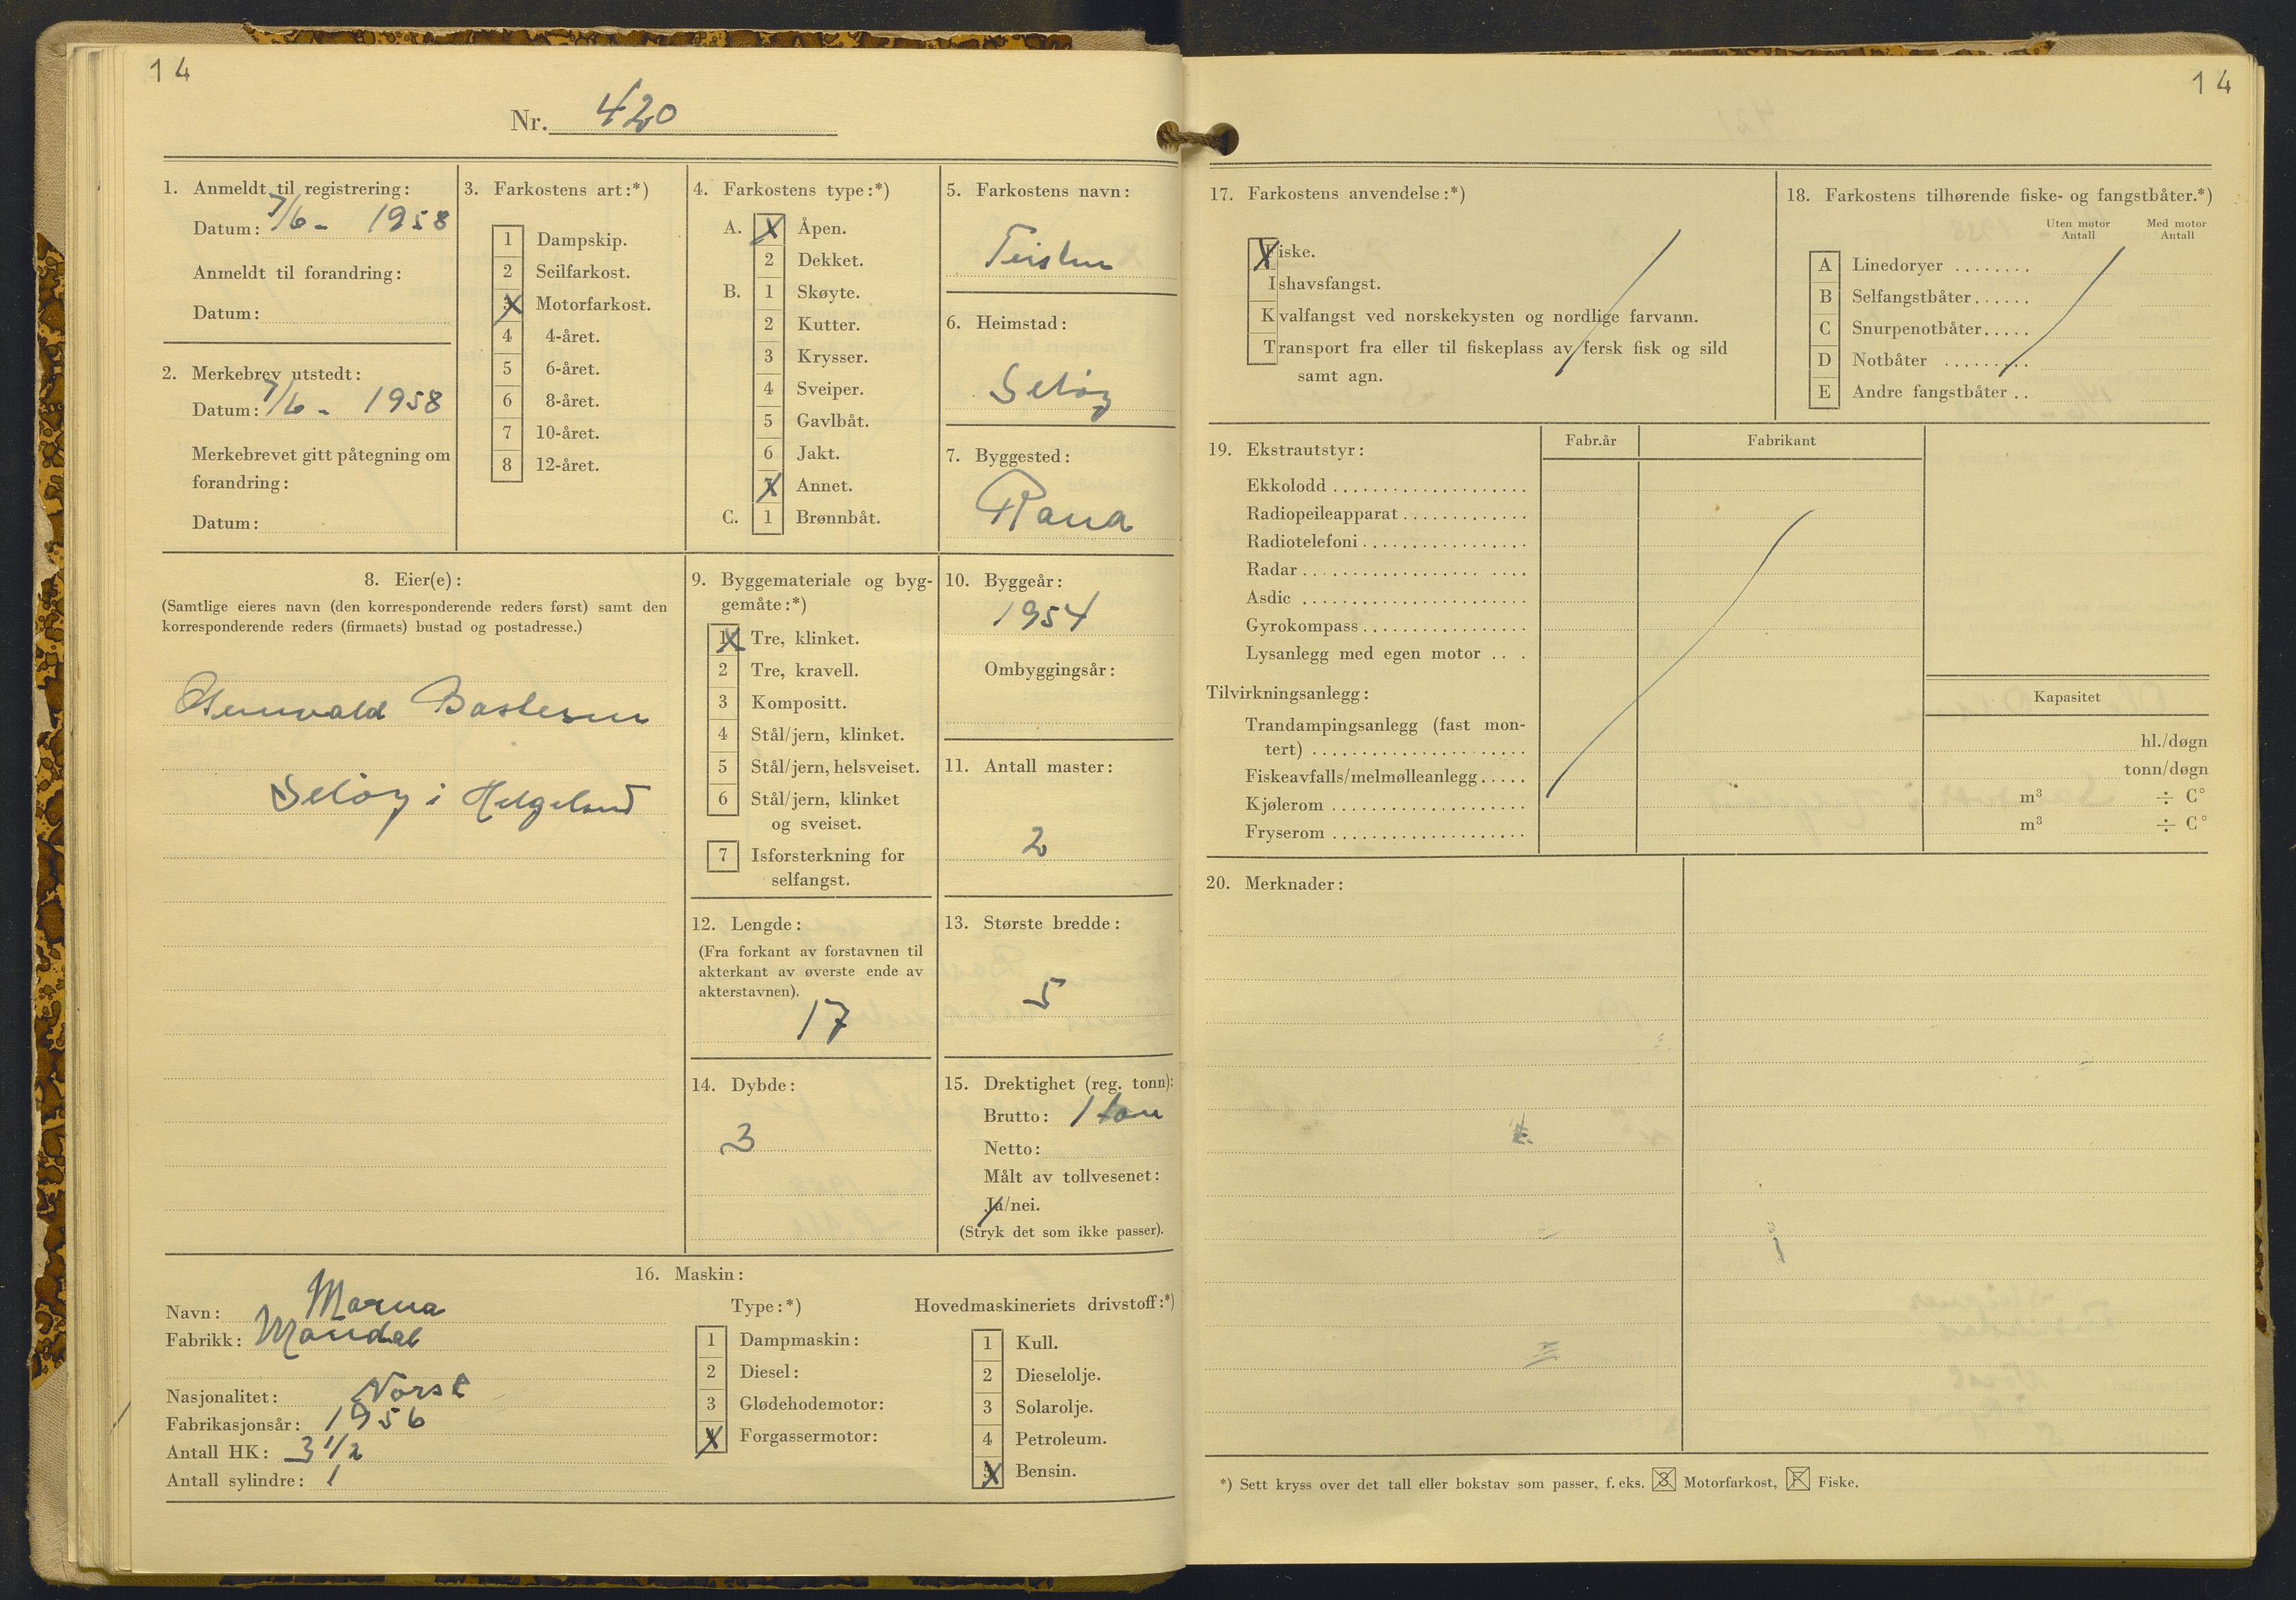 14
Nr. 420
1. Anmeldt til registrering:
Datum: 7/6 - 1958
Anmeldt til forandring:
Datum:
2. Merkebrev utstedt:
Datum: 7/6 - 1958
Merkebrevet gitt påtegning om
forandring:
Datum:
3. Farkostens art:*)
1 Dampskip.
2 Seilfarkost.
X Motorfarkost.
4 4-året.
5 6-året.
6 8-året.
7 10-året.
8 12-året.
4. Farkostens type:*)
A. X Åpen.
2 Dekket.
B. 1 Skøyte.
2 Kutter.
3 Krysser.
4 Sveiper.
5 Gavlbåt.
6 Jakt.
X Annet.
C. 1 Brønnbåt.
5. Farkostens navn:
6. Heimstad:
Seløy
7. Byggested:
Rana
8. Eier(e):
(Samtlige eieres navn (den korresponderende reders først) samt den
korresponderende reders (firmaets) bustad og postadresse.)
Seløy i Helgeland
9. Byggemateriale og byg-
gemåte:*)
X Tre, klinket.
2 Tre, kravell.
3 Kompositt.
4 Stål/jern, klinket.
5 Stål/jern, helsveiset.
6 Stål/jern, klinket
og sveiset.
7 Isforsterkning for
selfangst.
10. Byggeår:
1954
Ombyggingsår:
11. Antall master:
2
12. Lengde:
(Fra forkant av forstavnen til
akterkant av øverste ende av
akterstavnen).
17
13. Største bredde:
5
14. Dybde:
3
15. Drektighet (reg. tonn):
Brutto: 1 ton
Netto:
Målt av tollvesenet:
Ja/nei.
(Stryk det som ikke passer).
16. Maskin:
Navn: Marna
Fabrikk: Mandal
Nasjonalitet: Norsk
Fabrikasjonsår: 1956
Antall HK: 3 1/2
Antall sylindre: 1
Type:*)
1 Dampmaskin:
2 Diesel:
3 Glødehodemotor:
X Forgassermotor:
Hovedmaskineriets drivstoff:*)
1 Kull.
2 Dieselolje.
3 Solarolje.
4 Petroleum.
X Bensin.
14
17. Farkostens anvendelse:*)
Fiske.
Ishavsfangst.
Kvalfangst ved norskekysten og nordlige farvann.
Transport fra eller til fiskeplass av fersk fisk og sild
samt agn.
18. Farkostens tilhørende fiske- og fangstbåter.*)
Uten motor Med motor
Antall Antall
A Linedoryer ........
B Selfangstbåter......
C Snurpenotbåter.....
D Notbåter .........
E Andre fangstbåter ..
19. Ekstrautstyr:
Fabr.år Fabrikant
Ekkolodd ....................
Radiopeileapparat.............
Radiotelefoni.................
Radar.......................
Asdic .......................
Gyrokompass.................
Lysanlegg med egen motor ...
Tilvirkningsanlegg:
Kapasitet
Trandampingsanlegg (fast mon-
tert) ...................... hl./døgn
Fiskeavfalls/melmølleanlegg..... tonn/døgn
Kjølerom .................... m³ ÷ C°
Fryserom .................... m³ ÷ C°
20. Merknader:
*) Sett kryss over det tall eller bokstav som passer, f. eks. 3 Motorfarkost, F Fiske.